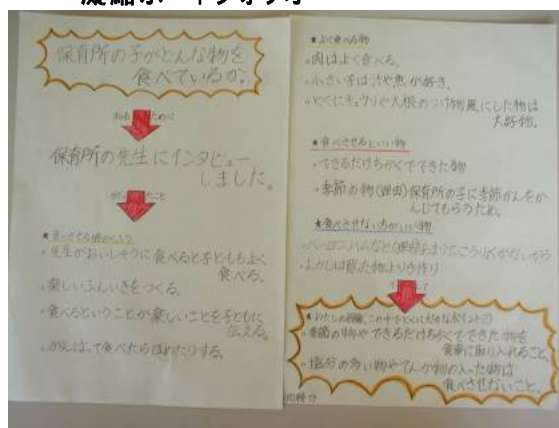 凝縮ポートフォリオ
保育所の子がどんな物を
食べているか。
知る ために
保育所の先生にインタビュー
しました。
こと
・先生がおいしそうに食べると子どももよく
食べる。
・楽しいふんいきをつくる。
・食べるということが楽しいことを子どもに
伝える。
・がんばって食べたらほめたりする。
★よく食べる物
・肉はよく食べる。
・小さい子は汁や魚が好き。
・とくにキュウリや大根のつけ物風にした物は
大好物。
★食べさせるといい物
・できるだけちかくでできた物
・季節の物(理由)保育所の子に季節かんをか
んじてもらうため。
★食べさせない方がいい物
・ベーコン、ハムなど
手作り
・季節の物やできるだけちかくでできた物を
食事に取り入れること。
・塩分の多い物やてんか物の入った物は
食べさせないこと。